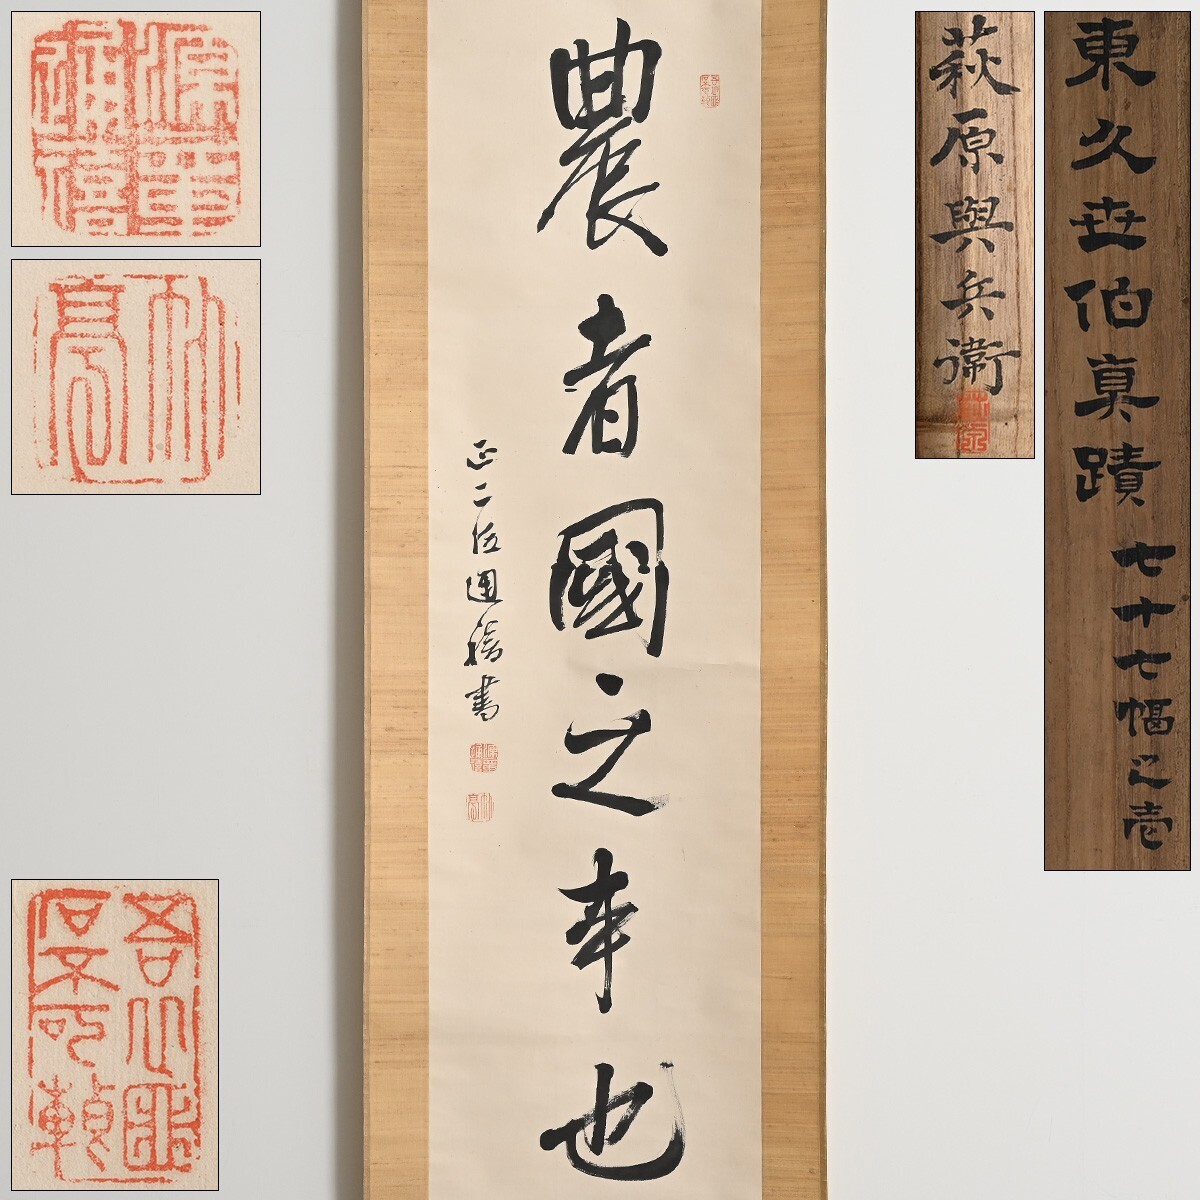 農者國之本也
正二位通禧書
源印通禧
竹亭
東久世伯真蹟 七十七幅之壱
萩原與兵衛